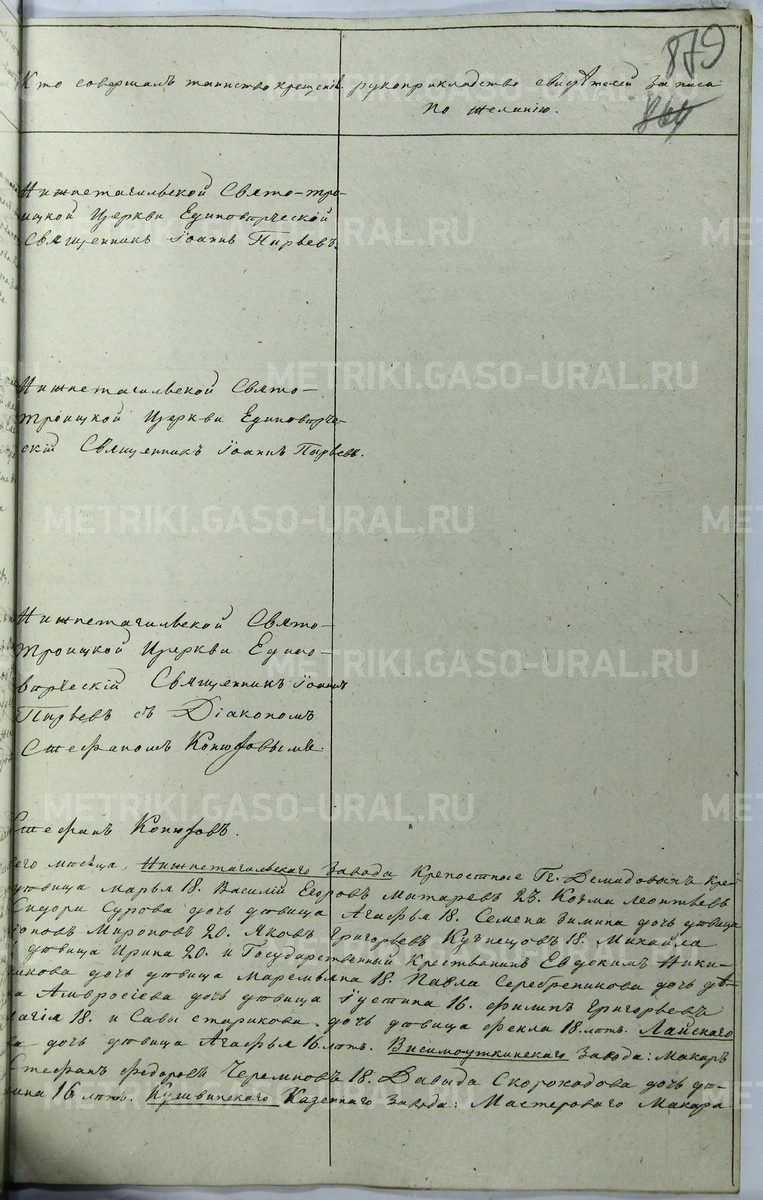 879
864
Кто совершалъ таинство крещенія
рукоприкладство свидѣтелей записа
по желанію.
Нижнетагильской Свято-тро-
ицкой Церкви Единовѣрческой
Священникъ Іоаннъ Пырьевъ.
Нижнетагильской Свято-
троицкой Церкви Единовѣрче-
скій Священникъ Іоаннъ Пырьевъ.
Нижнетагильской Свято-
троицкой Церкви Едино-
вѣрческій Священникъ Іоаннъ
Пырьевъ съ Діакономъ
Стефаномъ Конюховымъ.
Стефанъ Конюховъ.
его мѣсяца, Нижнетагильскаго Завода Крепостные Гг. Демидовыхъ Кре-
дѣвица Марья 18. Василій Егоровъ 23. Козма Леонтьевъ
Сидора Сурова дочь дѣвица Агафья 18. Семена Зимина дочь дѣвица
Мироновъ 20. Яковъ Григорьевъ Кузнецовъ 18. Михайла
дѣвица Ирина 20. и Государственный Крестьянинъ Евдокимъ Ники-
дочь дѣвица Маремьяна 18. Павла Серебреникова дочь дѣ-
ца Амвросіева дочь дѣвица Іустина 16. Филипъ Григорьевъ
лагія 18. и Савы старикова дочь дѣвица Фекла 18 лѣтъ. Лайскаго
ва дочь дѣвица Агафья 16 лѣтъ. Висимоуткинскаго Завода: Макаръ
Стефанъ Федоровъ Черемновъ 18. Давыда Скороходова дочь дѣ-
16 лѣтъ. Кушвинскаго Казеннаго Завода: Мастероваго Макара
METRIKI.GASO-URAL.RU